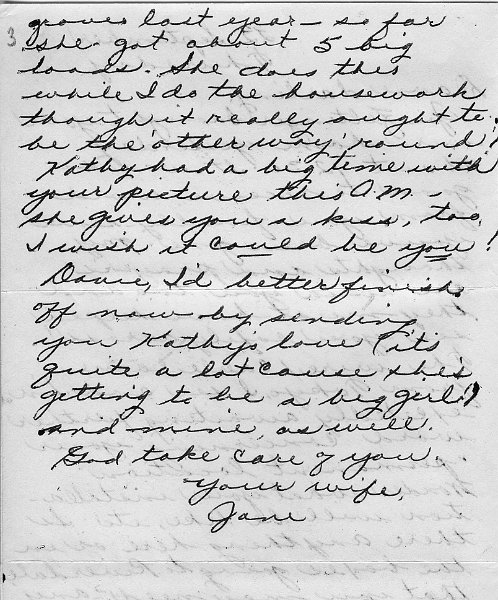 3
groves last year - so far
she got about 5 big
loads. She does this
while I do the housework
though it really ought to
be the other way 'round!
Kathy had a big time with
your picture this A.M. -
she gives you a kiss, too.
I wish it could be you!
Davie, I'd better finish
off now by sending
you Kathys love (it's
quite a lot cause she's
getting to be a big girl!)
and mine, as well.
God take care of you.
Your wife,
Jane